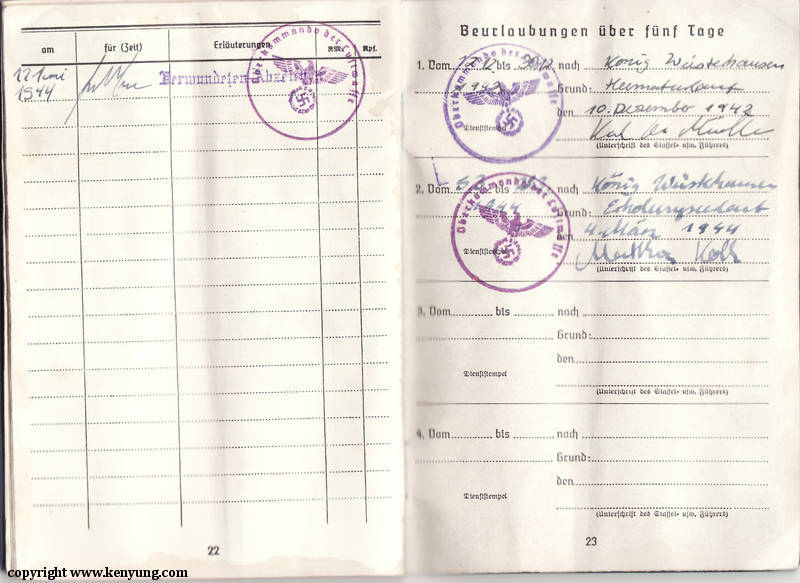 am für (Zeit) Erläuterungen RM. Rpf.
12 Juni
1944
Verwundeten-Abzeichen
Oberkommando der Luftwaffe
22
Beurlaubungen über fünf Tage
1. Vom bis 30.12 nach König Wusterhausen
Grund: Heimaturlaub
den 10. Dezember 1942
Dienststempel
(Unterschrift des Staffel- usw. Führers)
Oberkommando der Luftwaffe
2. Vom bis nach König Wusterhausen
1944 Grund: Erholungsurlaub
den 4. März 1944
Dienststempel
(Unterschrift des Staffel- usw. Führers)
Oberkommando der Luftwaffe
3. Vom bis nach
Grund:
den
Dienststempel
(Unterschrift des Staffel- usw. Führers)
4. Vom bis nach
Grund:
den
Dienststempel
(Unterschrift des Staffel- usw. Führers)
23
copyright www.kenyung.com